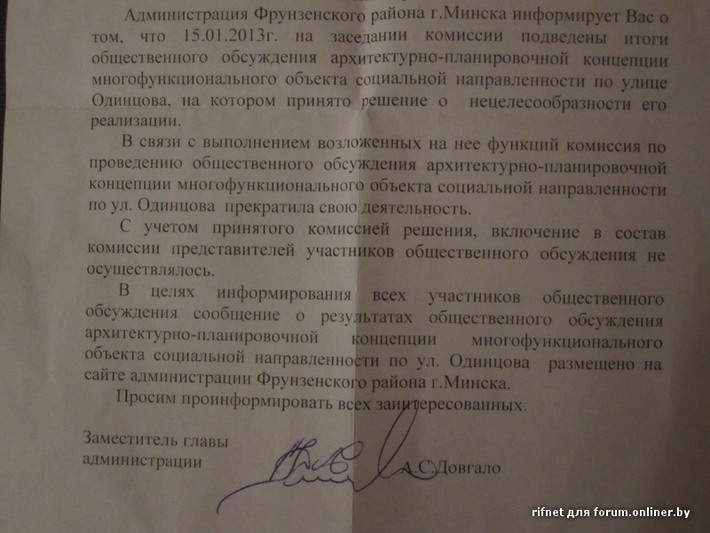 Администрация Фрунзенского района г.Минска информирует Вас о
том, что 15.01.2013г. на заседании комиссии подведены итоги
общественного обсуждения архитектурно-планировочной концепции
многофункционального объекта социальной направленности по улице
Одинцова, на котором принято решение о нецелесообразности его
реализации.
В связи с выполнением возложенных на нее функций комиссия по
проведению общественного обсуждения архитектурно-планировочной
концепции многофункционального объекта социальной направленности
по ул. Одинцова прекратила свою деятельность.
С учетом принятого комиссией решения, включение в состав
комиссии представителей участников общественного обсуждения не
осуществлялось.
В целях информирования всех участников общественного
обсуждения сообщение о результатах общественного обсуждения
архитектурно-планировочной концепции многофункционального
объекта социальной направленности по ул. Одинцова размещено на
сайте администрации Фрунзенского района г.Минска.
Просим проинформировать всех заинтересованных.
Заместитель главы
администрации А.С.Довгало
rifnet для forum.onliner.by